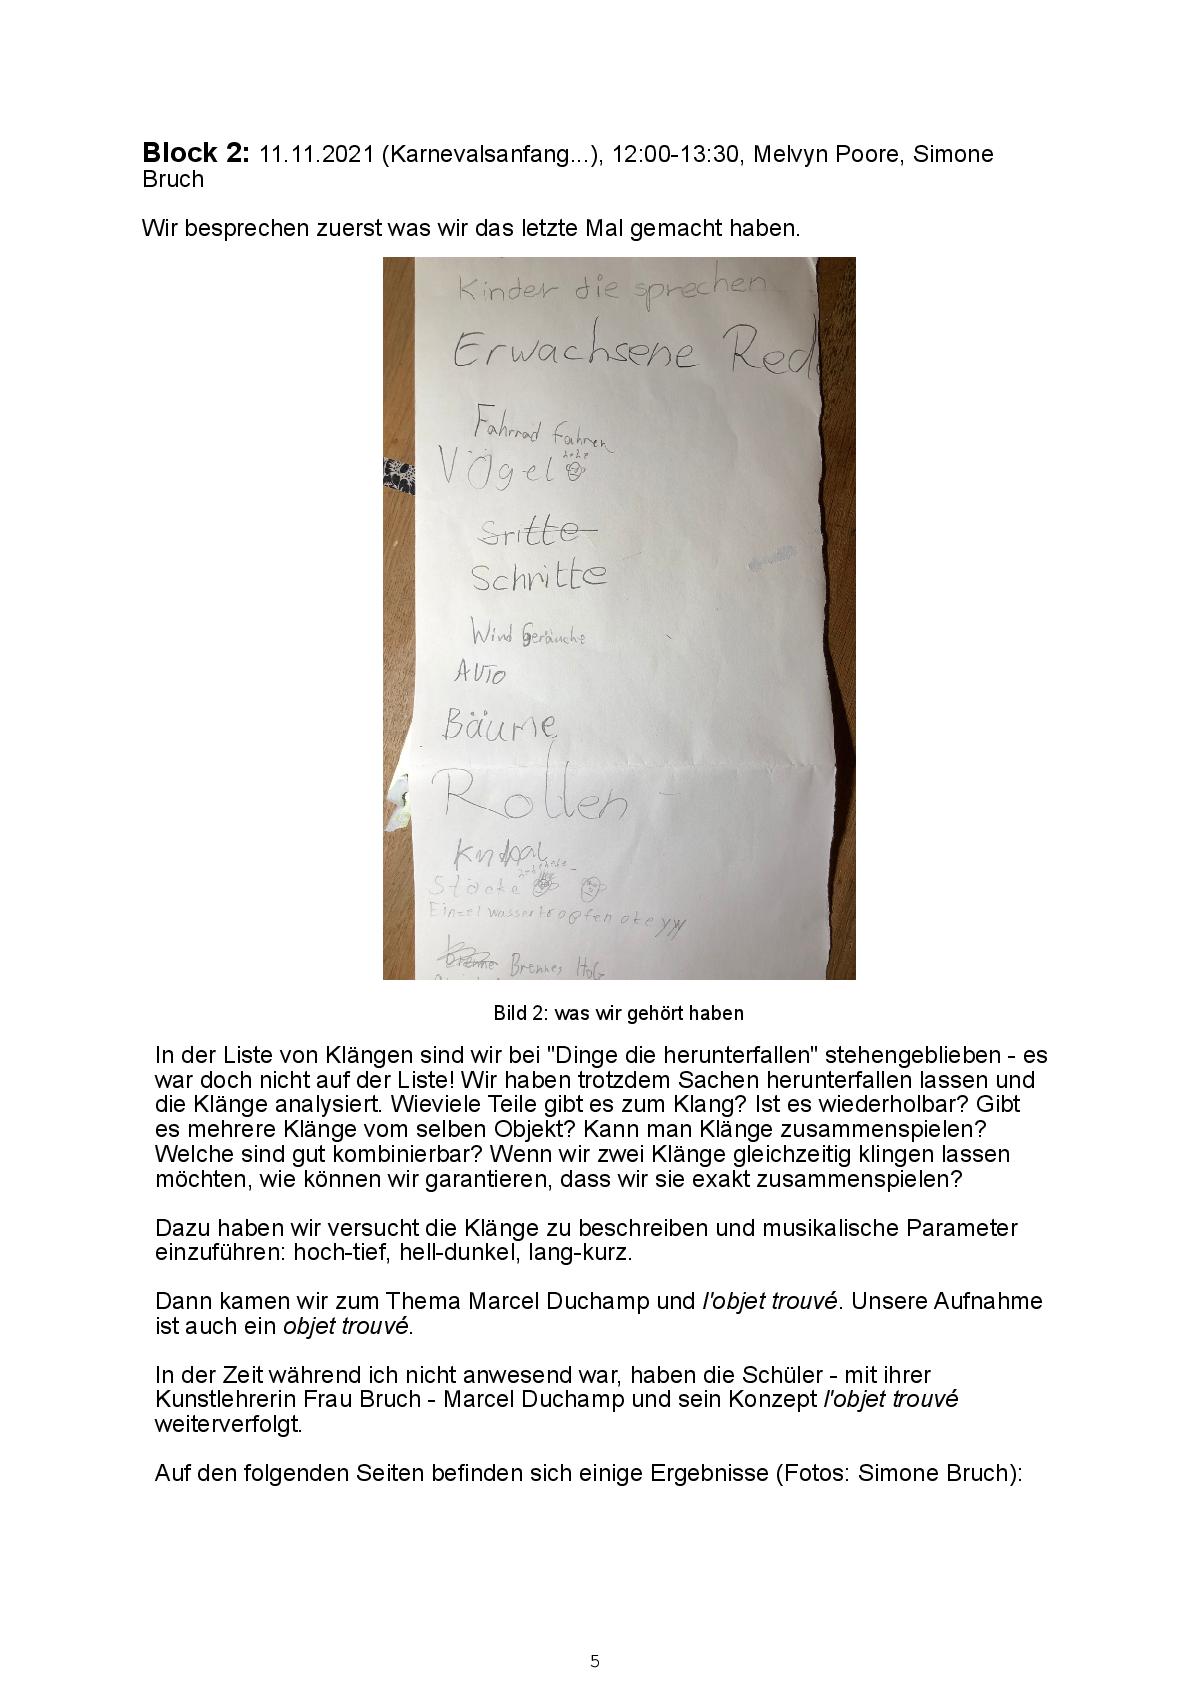 Block 2: 11.11.2021 (Karnevalsanfang...), 12:00-13:30, Melvyn Poore, Simone
Bruch
Wir besprechen zuerst was wir das letzte Mal gemacht haben.
Kinder die sprechen
Erwachsene Red
Fahrrad fahren
Vögel
Sritte
Schritte
Wind Geräuche
AUTO
Bäume
Rollen
Stöcke
Einzel wassertropfen
Brennes Holz
Bild 2: was wir gehört haben
In der Liste von Klängen sind wir bei "Dinge die herunterfallen" stehengeblieben - es
war doch nicht auf der Liste! Wir haben trotzdem Sachen herunterfallen lassen und
die Klänge analysiert. Wieviele Teile gibt es zum Klang? Ist es wiederholbar? Gibt
es mehrere Klänge vom selben Objekt? Kann man Klänge zusammenspielen?
Welche sind gut kombinierbar? Wenn wir zwei Klänge gleichzeitig klingen lassen
möchten, wie können wir garantieren, dass wir sie exakt zusammenspielen?
Dazu haben wir versucht die Klänge zu beschreiben und musikalische Parameter
einzuführen: hoch-tief, hell-dunkel, lang-kurz.
Dann kamen wir zum Thema Marcel Duchamp und l'objet trouvé. Unsere Aufnahme
ist auch ein objet trouvé.
In der Zeit während ich nicht anwesend war, haben die Schüler - mit ihrer
Kunstlehrerin Frau Bruch - Marcel Duchamp und sein Konzept l'objet trouvé
weiterverfolgt.
Auf den folgenden Seiten befinden sich einige Ergebnisse (Fotos: Simone Bruch):
5